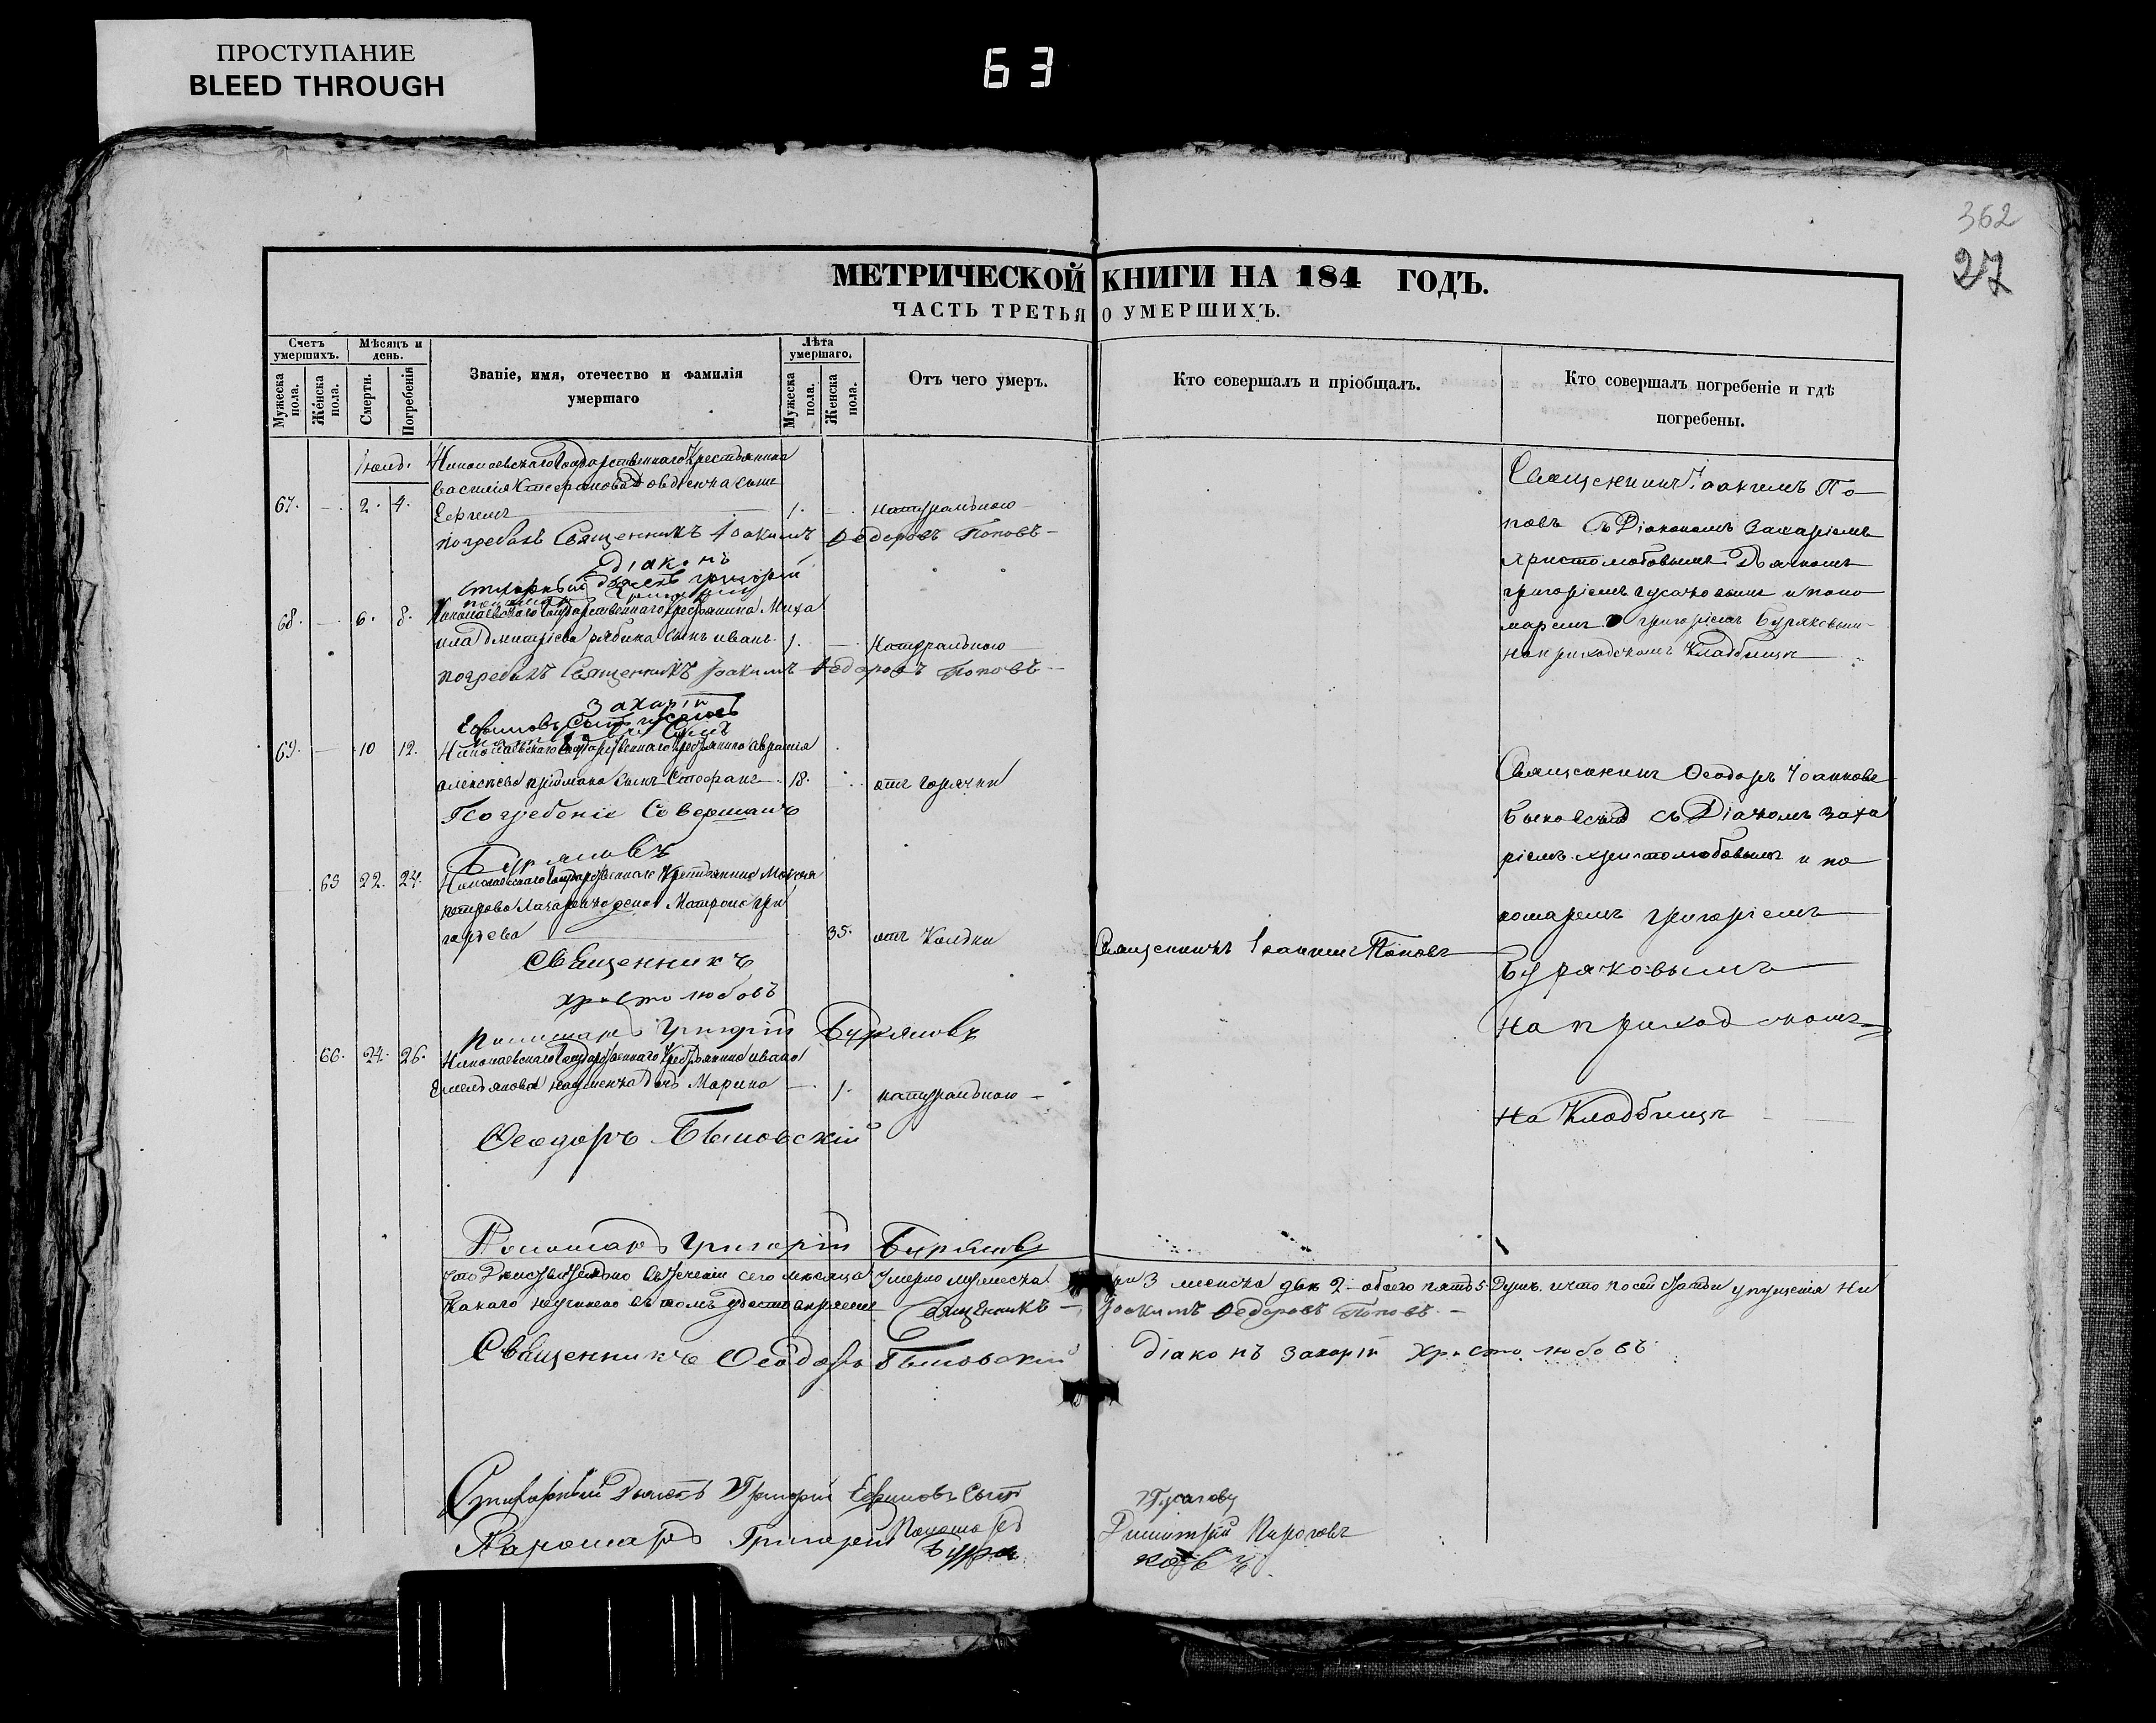 ПРОСТУПАНИЕ
BLEED THROUGH
63
362
27
МЕТРИЧЕСКОЙ КНИГИ НА 184 ГОДЪ.
ЧАСТЬ ТРЕТЬЯ О УМЕРШИХЪ.
Счетъ умершихъ.
Мужеска пола.
Женска пола.
Мѣсяцъ и день.
Смерти.
Погребенія
Званіе, имя, отечество и фамилія умершаго
Лѣта умершаго.
Мужеска пола.
Женска пола.
Отъ чего умеръ.
Кто совершалъ и пріобщалъ.
Кто совершалъ погребеніе и гдѣ
погребены.
Николаевскаго Государственнаго Крестьянина
67. 2. 4.
1. натуральною
погребалъ Священникъ Іоакимъ Федоровъ Поповъ
Діаконъ
Стихарный Дьячекъ Григорій
68. 6. 8. Николаевскаго Государственнаго Крестьянина Миха
ила Дмитріева сынъ Иванъ 1. натуральною
погребалъ Священникъ Іоакимъ Федоровъ Поповъ
Захарій
Ефимовъ Сынъ
69. 10 12. Николаевскаго Государственнаго Крестьянина
Алексѣева сынъ Стефанъ 18. отъ горячки
Погребеніе Совершалъ
Буряковъ
65 22. 24. Николаевскаго Государственнаго Крестьянина
петрова Лазаренка жена Матрона Гри
горьева 35. отъ
Священникъ Іоакимъ Поповъ
Священникъ
Христолюбовъ
Пономарь Григорій Буряковъ
66. 24. 26. Николаевскаго Государственнаго Крестьянина Ивана
Емельянова Науменка дочь Марина 1. натуральною
Феодоръ Быновскій
Пономарь Григорій Буряковъ
Священникъ Іоакимъ По
повъ съ Діакономъ Захаріемъ
Христолюбовымъ Дьячкомъ
григоріемъ гусаковымъ и поно
маремъ григоріемъ Буряковымъ
на приходскомъ Кладбищѣ
Священникъ Феодоръ Іоанновъ
съ Діакономъ Заха
ріемъ христолюбовымъ и по
номаремъ григоріемъ
Буряковымъ
на приходскомъ
на Кладбищѣ
что Дѣйствительно въ теченіи сего мѣсяца Умерло мужеска три 3 женска двѣ 2 обоего пять 5 Душъ. и что по сей статьи упущенія ни
какаго неучинено въ томъ удостовѣряемъ Священникъ Іоакимъ Федоровъ Поповъ
Священникъ Феодоръ Быновскій Діаконъ Захарій Христолюбовъ
Стихарный Дьячекъ Григорій Ефимовъ Сынъ Гусаковъ
Пономарь Григорій Пономарь Димитрій Пироговъ